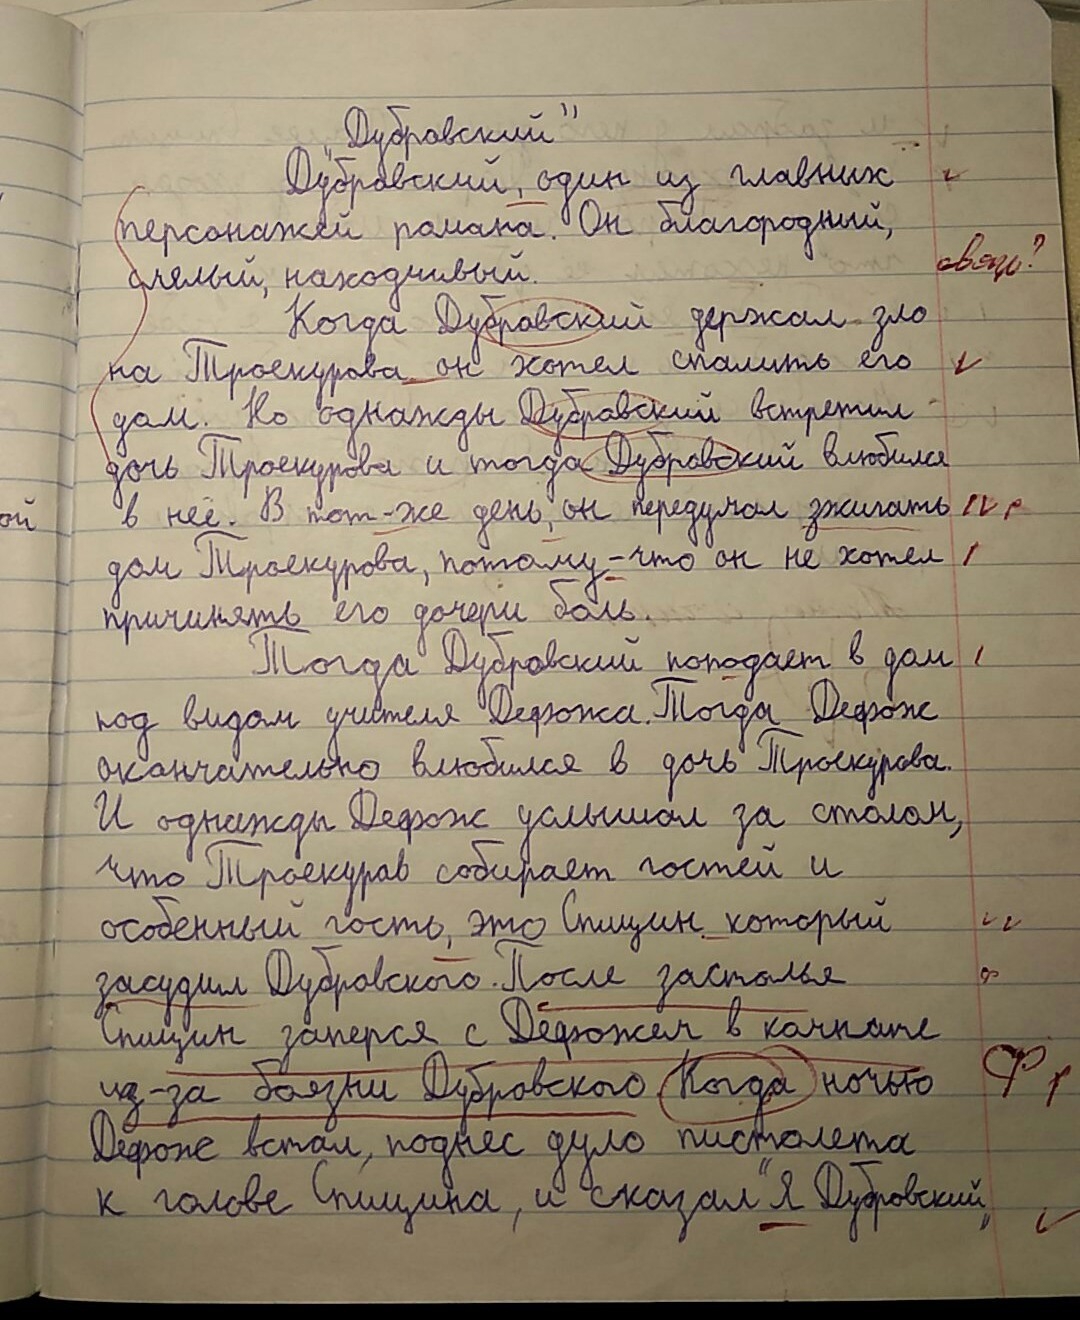 „Дубровский"
Дубровский, один из главных
персонажей романа. Он благородный,
смелый, находчивый.
связь?
Когда Дубровский держал зло
на Троекурова он хотел спалить его
дом. Но однажды Дубровский встретил
дочь Троекурова и тогда Дубровский влюбился
в неё. В тот-же день, он передумал зжигать
ой
дом Троекурова, потому-что он не хотел
причинять его дочери боль.
Тогда Дубровский поподает в дом
под видом учителя Дефожа. Тогда Дефож
окончательно влюбился в дочь Троекурова.
И однажды Дефож услышал за столом,
что Троекуров собирает гостей и
особенный гость, это Спицин который
засудил Дубровского. После застолья
Спицин заперся с Дефожем в комнате
из-за боязни Дубровского. Когда ночью
Ф р
Дефож встал, поднёс дуло пистолета
к голове Спицина, и сказал "Я Дубровский"